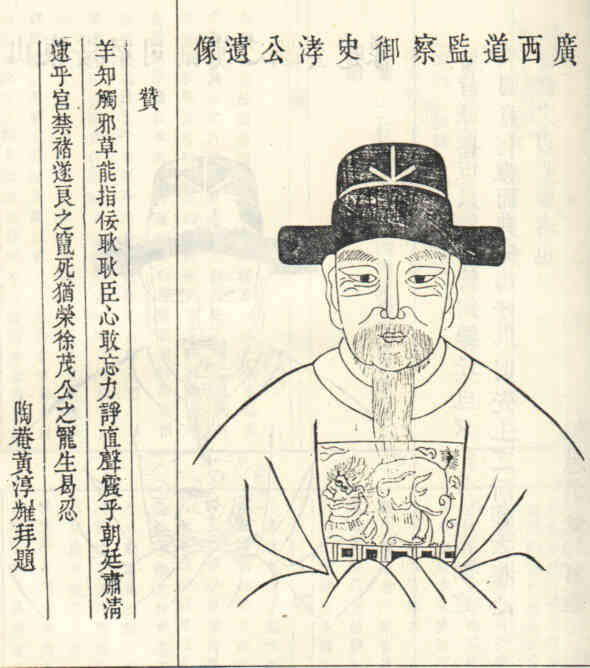 廣西道監察御史浡公遺像
贊
羊知觸邪草能指佞耿耿臣心敢忘力諍直聲震乎朝廷肅清
逮乎宮禁禇遂良之竄死猶榮徐茂公之寵生曷忍
陶菴黃淳耀拜題